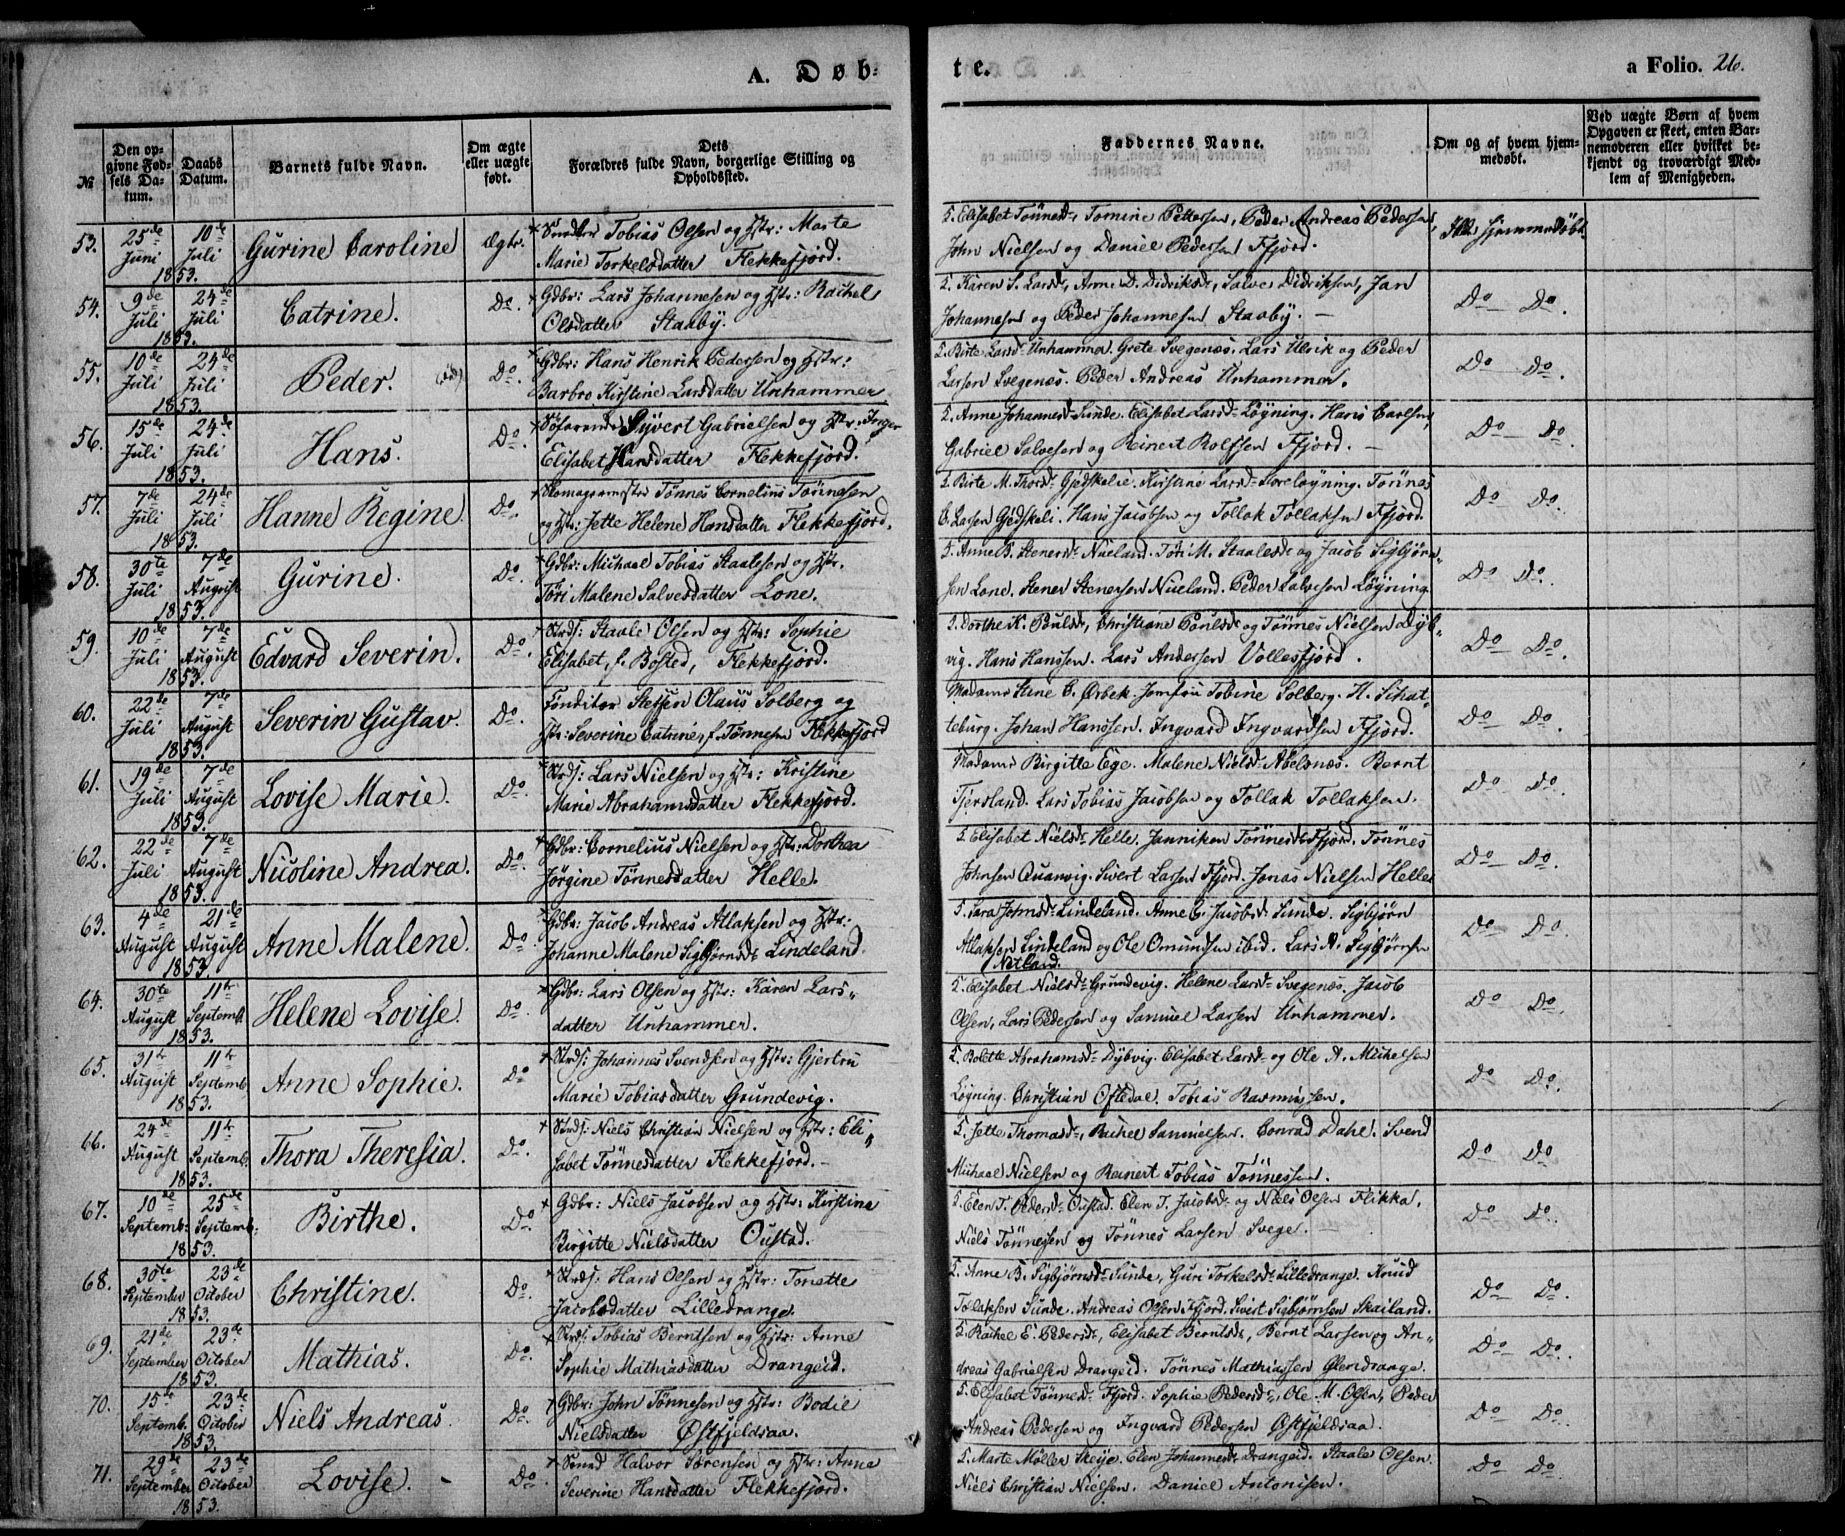 A. Døb-
te.
a Folio. 26.
№
Den op-
givne Fød-
sels Da-
tum.
Daabs
Datum.
Barnets fulde Navn.
Om ægte
eller uægte
født.
Dets
Forældres fulde Navn, borgerlige Stilling og
Opholdssted.
Faddernes Navne.
Om og af hvem hjem-
medøbt.
Ved uægte Børn af hvem
Opgaven er skeet, enten Bar-
nemoderen eller hvilket be-
kjendt og troværdigt Med-
lem af Menigheden.
53. 25de Juni 10de Juli 1853. Gurine Caroline Ægte.
Tobias Olsen og Hstr: Marte
Marie Torkelsdatter Flekkefjord.
5. Elisabet Tønnesd., Tomine Pettersen, Peder Andreas Pedersen,
John Nielsen og Daniel Pedersen Ffjord.
Ikke hjemmedøbt.
54. 9de Juli 24de Juli 1853. Catrine. Do.
Gdbr: Lars Johannesen og Hstr: Rachel
Olsdatter Staaby.
5. Karen S. Larsd., Anne D. Didriksd., Salve Didriksen, Jan
Johannesen og Peder Johannesen Staaby. —
Do — Do.
55. 10de Juli 24de Juli 1853. Peder. Do.
Gdbr: Hans Henrik Pedersen og Hstr:
Barbro Kirstine Larsdatter Unhammer
5. Birte Larsd. Unhammer. Grete Svegenæs. Lars Ulrik og Peder
Larsen Svegenæs. Peder Andreas Unhammer.
Do — Do.
56. 15de Juli 24de Juli 1853. Hans. Do.
Søfarende Syvert Gabrielsen og Hstr: Inger
Elisabet Hansdatter Flekkefjord.
5. Anne Johannesd. Sunde. Elisabet Larsd. Løyning. Hans Carlsen,
Gabriel Salvesen og Reinert Rolfsen Ffjord. —
Do — Do.
57. 7de Juli 24de Juli 1853. Hanne Regine. Do.
Skomagermester Tønnes Cornelius Tønnesen
og Hstr: Jette Helene Hansdatter Flekkefjord.
5. Birte M. Thorsd. Gjedskelie. Kirstine Larsd. Store Løyning. Tønnes
C. Larsen Gjedskeli. Hans Jacobsen og Tollak Tollaksen Ffjord.
Do — Do.
58. 30te Juli 7de August 1853. Gurine. Do.
Gdbr: Michael Tobias Staalesen og Hstr.
Tori Malene Salvesdatter Lone.
5. Anne B. Stenersd. Nueland. Tori M. Staalesd. og Jacob Sigbjørn-
sen Lone. Stener Stenersen Nueland. Peder Salvesen Løyning.
Do Do.
59. 10de Juli 7de August 1853. Edvard Severin. Do.
Strds: Staale Olsen og Hstr: Sophie
Elisabet, f. Bosted, Flekkefjord.
5. Dorthe K. Poulsd., Christiane Poulsd. og Tønnes Nielsen Dyb-
vig. Hans Hanssen. Lars Andersen Vollesfjord.
Do — Do.
60. 22de Juli 7de August 1853. Severin Gustav. Do.
Konditor Steffen Olaus Solberg og
Hstr: Severine Catrine, f. Tønnesen Flekkefjord
Madame Stine C. Ørbek. Jomfru Tobine Solberg. H. Schat-
teburg. Johan Hanssen. Ingvard Ingvardsen Ffjord.
Do — Do.
61. 19de Juli 7de August 1853. Lovise Marie. Do.
Strds: Lars Nielsen og Hstr: Kristine
Marie Abrahamsdatter Flekkefjord.
Madame Birgitte Ege. Malene Nielsd. Abelsnæs. Bernt
Fjersland. Lars Tobias Jacobsen og Tollak Tollaksen.
Do — Do.
62. 22de Juli 7de August 1853. Nicoline Andrea. Do.
Gdbr: Cornelius Nielsen og Hstr: Dorthea
Jørgine Tønnesdatter Helle.
5. Elisabet Nielsd. Helle. Janniken Tønnesd. Ffjord. Tønnes
Johnsen Quanvig. Sivert Larsen Ffjord. Jonas Nielsen Helle.
Do — Do.
63. 4de August 21de August 1853. Anne Malene. Do.
Gdbr: Jacob Andreas Atlaksen og Hstr:
Johanne Malene Sigbjørnsd. Lindeland.
5. Sara Johnsd. Lindeland. Anne G. Jacobsd. Sunde. Sigbjørn
Atlaksen Lindeland og Ole Omundsen ibid. Lars N. Sigbjørnsen
Netland.
Do Do.
64. 30te August 11te Septemb. 1853. Helene Lovise. Do.
Gdbr: Lars Olsen og Hstr: Karen Lars-
datter Unhammer.
5. Elisabet Nielsd. Grundevig. Helene Larsd. Svegenæs. Jacob
Olsen, Lars Pedersen og Samuel Larsen Unhammer.
Do Do.
65. 31te August 11te Septemb. 1853. Anne Sophie. Do
Strds: Johannes Svendsen og Hstr: Gjertru
Marie Tobiasdatter Grundevig.
5. Bolette Abrahamsd. Dybvig. Elisabet Larsd. og Ole A. Michelsen
Løyning. Christian Oftedal. Tobias Rasmussen.
Do Do.
66. 24de August 11te Septemb. 1853. Thora Theresia. Do.
Strds: Niels Christian Nielsen og Hstr: Eli-
sabet Tønnesdatter Flekkefjord. —
5. Jette Thomasd., Rachel Samuelsen. Conrad Dahl. Svend
Michael Nielsen og Reinert Tobias Tønnessen.
Do Do
67. 10de Septemb: 25de Septemb: 1853. Birthe. Do.
Gdbr: Niels Jacobsen og Hstr: Kirstine
Birgitte Nielsdatter Oustad.
5. Elen T. Pedersd. Oustad. Elen T. Jacobsd. og Niels Olsen Flikka.
Niels Tønnesen og Tønnes Larsen Svege.
Do Do.
68. 30te September 23de October 1853. Christine. Do.
Strds: Hans Olsen og Hstr: Tonette
Jacobsdatter Lilledrange.
5. Anne B. Sigbjørnsd. Sunde, Guri Torkelsd. Lilledrange. Knud
Tollaksen Sunde. Andreas Olsen Ffjord. Sivert Sigbjørnsen Skailand.
Do Do.
69. 21de September 23de October 1853. Mathias. Do.
Strds: Tobias Berntsen og Hstr: Anne
Sophie Mathiasdatter Drangeid.
5. Rachel E. Pedersd., Elisabet Berntsd., Bernt Larsen og An-
dreas Gabrielsen Drangeid. Tønnes Mathiassen Glendrange.
Do Do.
70. 15de Septemb. 23de October 1853. Niels Andreas. Do.
Gdbr: John Tønnesen og Hstr: Bodil
Nielsdatter Østfjeldsaa.
5. Elisabet Tønnesd. Ffjord. Sophie Pedersd., Ole M. Olsen, Peder
Andreas Pedersen og Ingvard Pedersen Østfjeldsaa.
Do Do.
71. 29de September 23de October 1853. Lovise. Do.
Smed Halvor Sørensen og Hstr: Anne
Severine Hansdatter Flekkefjord.
5. Marte Møller Skeye. Elen Johannesd. Drangeid. Staale Olsen.
Niels Christian Nielsen. Daniel Antonisen.
Do Do.